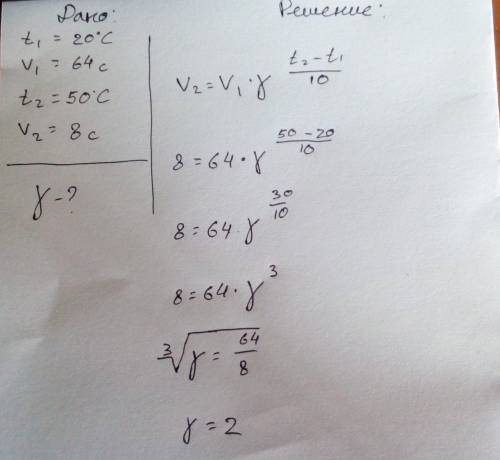 Дано:
t₁ = 20°C
V₁ = 64 c
t₂ = 50°C
V₂ = 8 c
γ - ?
Решение:
V₂ = V₁ · γ^((t₂ - t₁)/10)
8 = 64 · γ^((50 - 20)/10)
8 = 64 · γ^(30/10)
8 = 64 · γ³
∛(γ = 64/8)
γ = 2